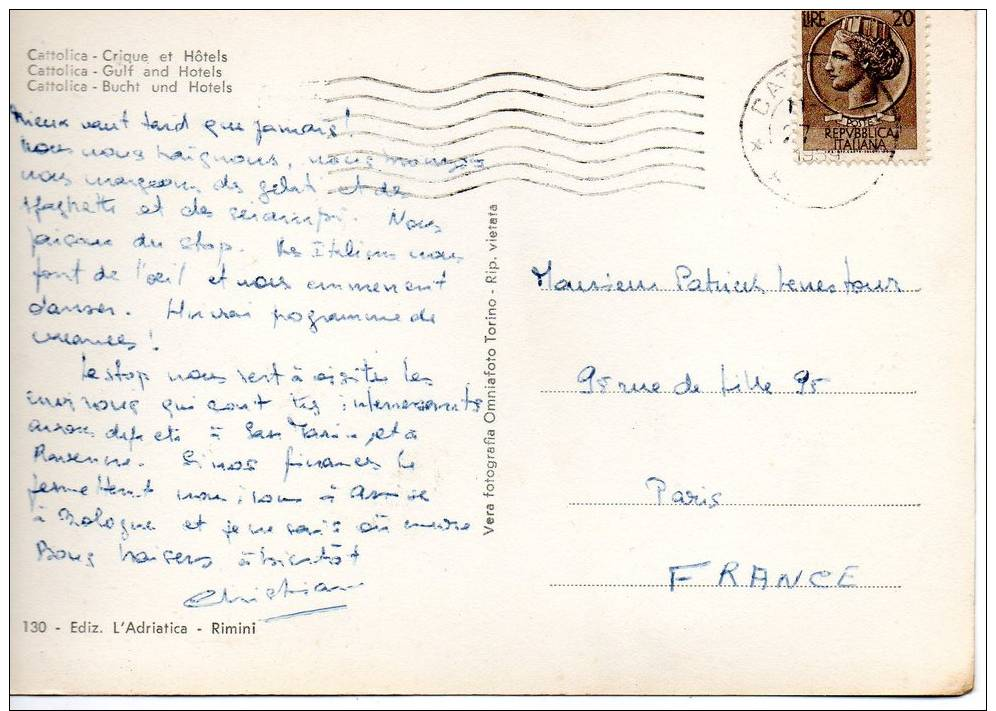 Cattolica - Crique et Hôtels
Cattolica - Gulf and Hotels
Cattolica - Bucht und Hotels
Mieux vaut tard que jamais!
Nous nous baignons, nous
nous mangeons des gelati et des
spaghetti et des Nous
faisons du stop. Les Italiens nous
font de l'oeil et nous emmènent
danser. Un vrai programme de
vacances!
Le stop nous sert à visiter les
environs qui sont très intéressants
avons été à San Marin, et à
Ravenne. Si nos finances le
permettent nous irons à Assise
à Bologne et je ne sais où encore
Bons baisers à bientôt
Christian
130 - Ediz. L'Adriatica - Rimini
Vera fotografia Omniafoto Torino - Rip. vietata
LIRE 20
POSTE
REPVBBLICA
ITALIANA
1959
Monsieur Patrick
95 rue de Lille 95
Paris
FRANCE